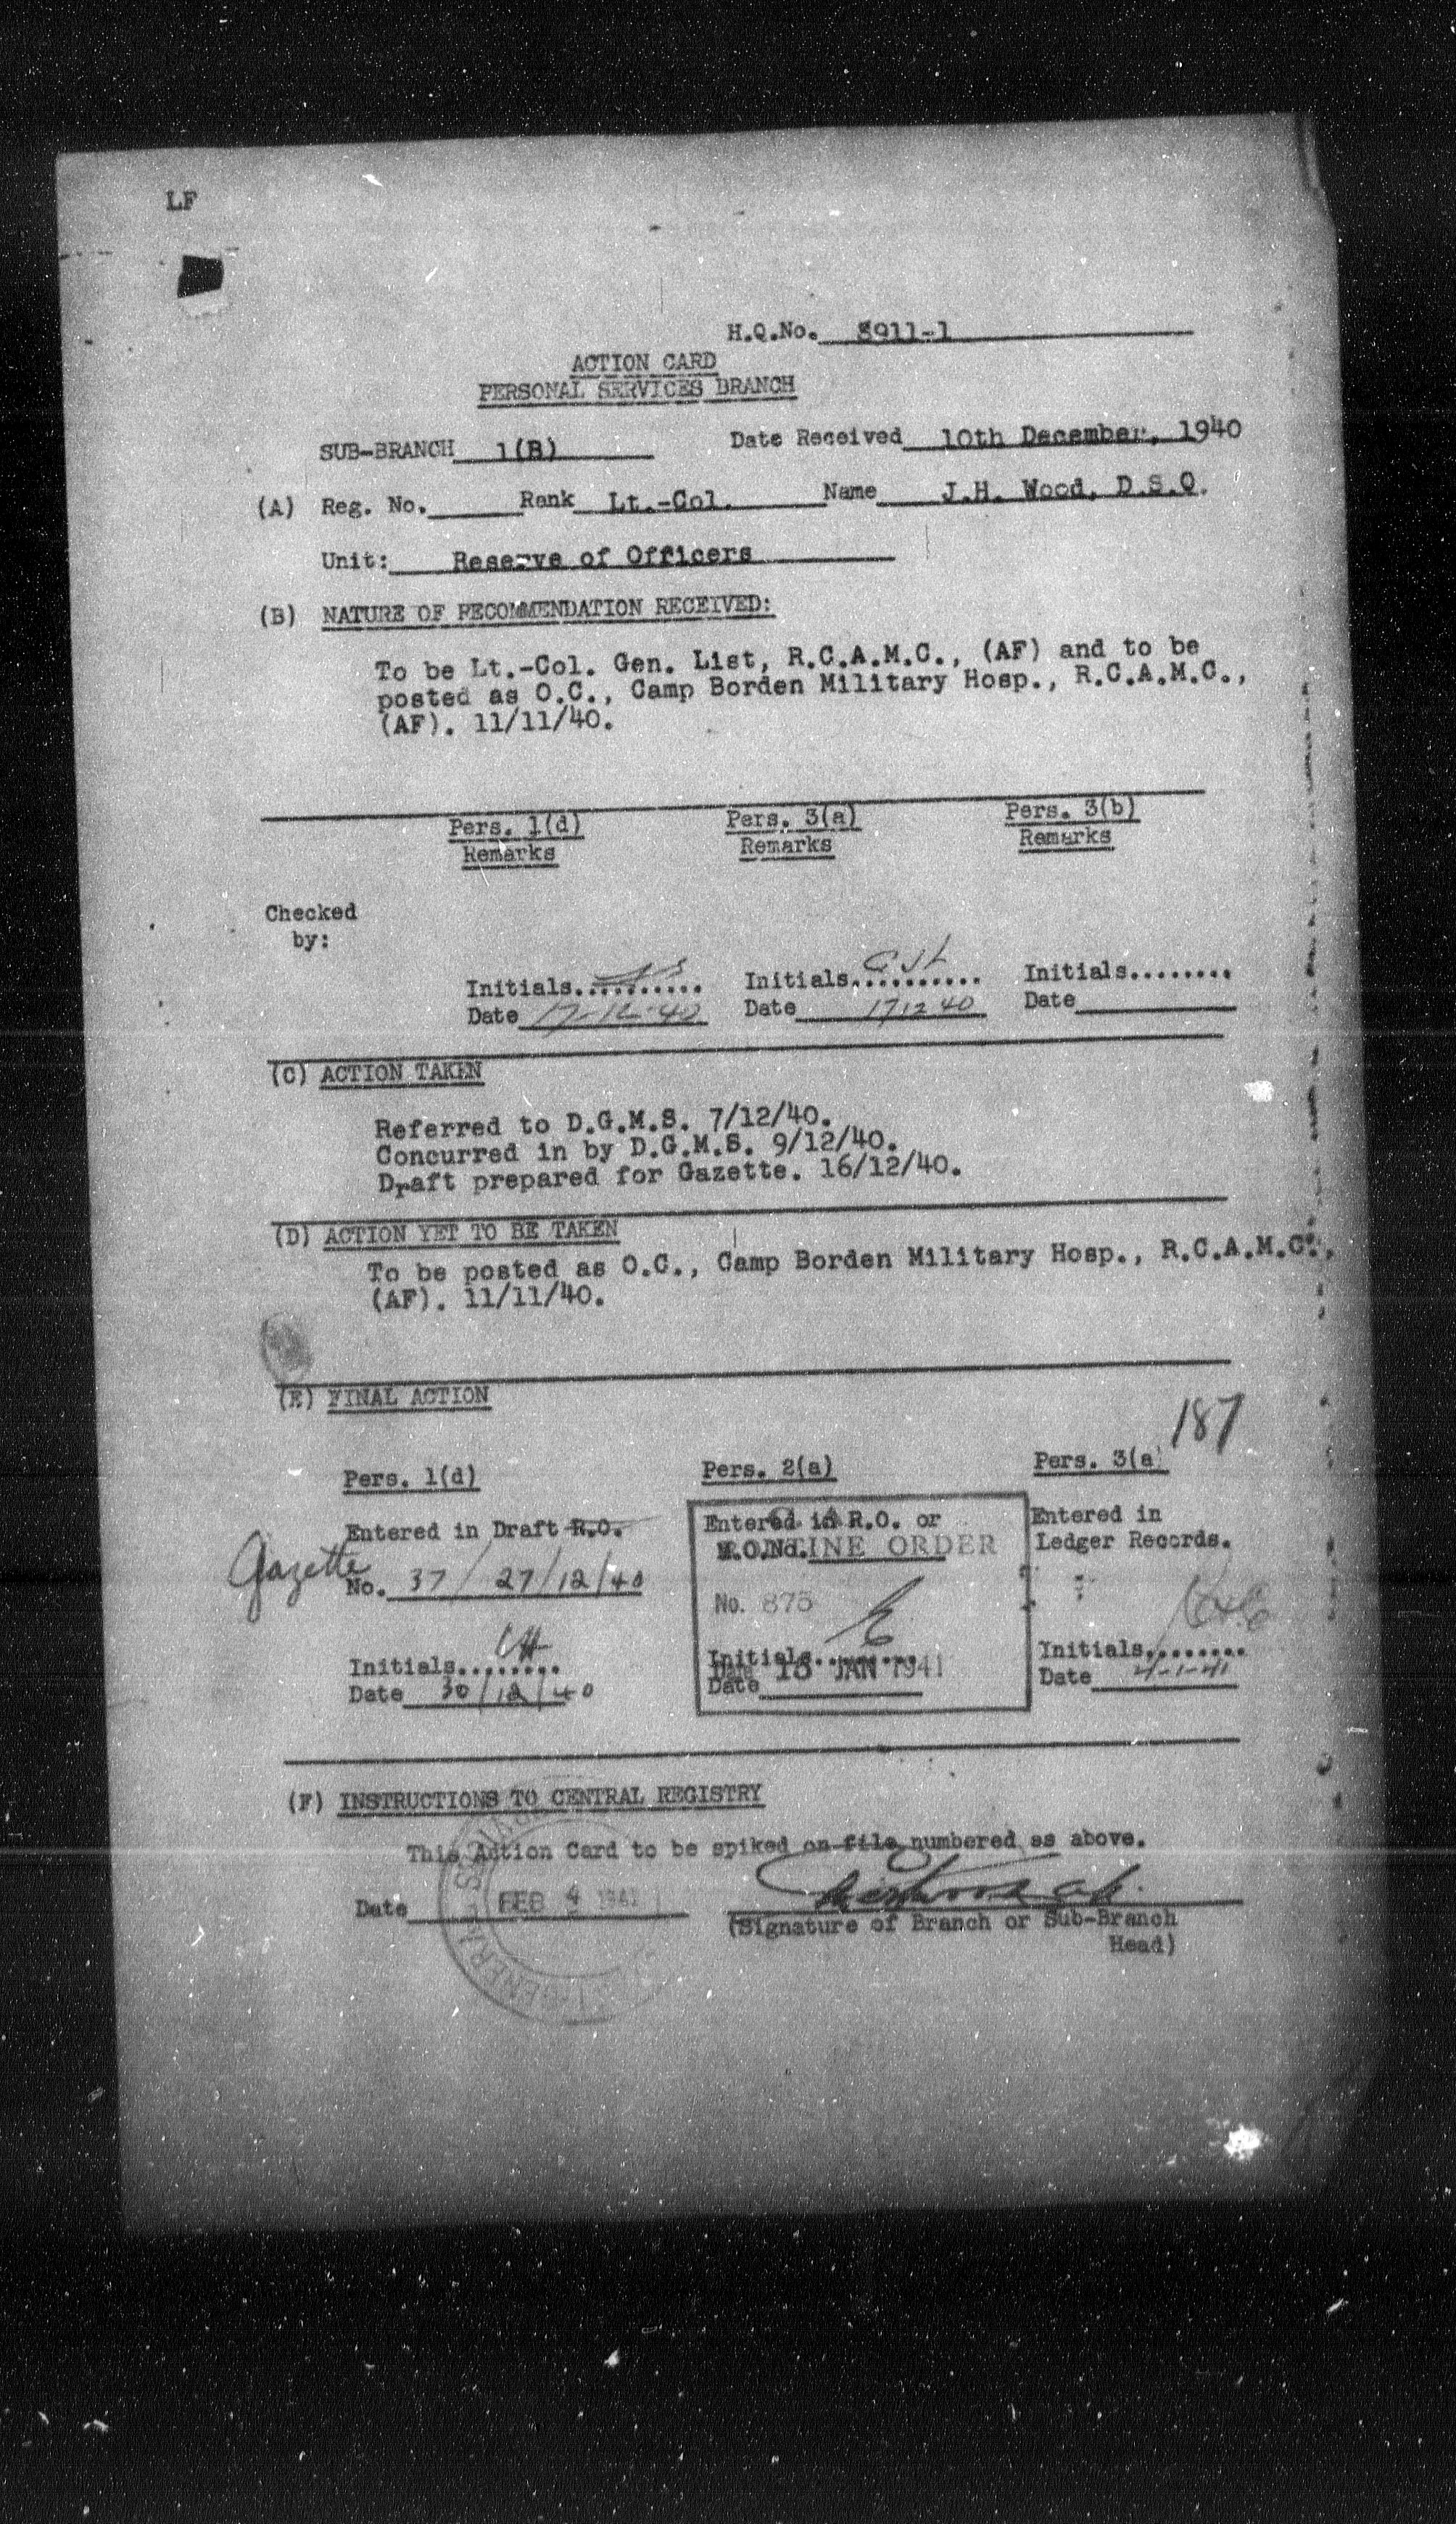 LF
H.Q.No. 8911-1
ACTION CARD
PERSONAL SERVICES BRANCH
SUB-BRANCH 1(B) Date Received 10th December, 1940
(A) Reg. No. Rank Lt.-Col. Name J.H. Wood, D.S.O.
Unit: Reserve of Officers
(B) NATURE OF RECOMMENDATION RECEIVED:
To be Lt.-Col. Gen. List, R.C.A.M.C., (AF) and to be
posted as O.C., Camp Borden Military Hosp., R.C.A.M.C.,
(AF). 11/11/40.
Pers. 1(d) Pers. 3(a) Pers. 3(b)
Remarks Remarks Remarks
Checked
by:
Initials.......... Initials.......... Initials........
Date 17-12-40 Date 17 12 40 Date
(C) ACTION TAKEN
Referred to D.G.M.S. 7/12/40.
Concurred in by D.G.M.S. 9/12/40.
Draft prepared for Gazette. 16/12/40.
(D) ACTION YET TO BE TAKEN
To be posted as O.C., Camp Borden Military Hosp., R.C.A.M.C.,
(AF). 11/11/40.
(E) FINAL ACTION
187
Pers. 1(d) Pers. 2(a) Pers. 3(a)
Entered in Draft R.O. Entered in R.O. or Entered in
ROUTINE ORDER Ledger Records.
Gazette No. 37/ 27/12/40 No. 875
Initials......... Initials......... Initials.........
Date 30/12/40 Date JAN 1941 Date 4-1-41
(F) INSTRUCTIONS TO CENTRAL REGISTRY
This Action Card to be spiked on file numbered as above.
Date FEB 4 1941
(Signature of Branch or Sub-Branch
Head)